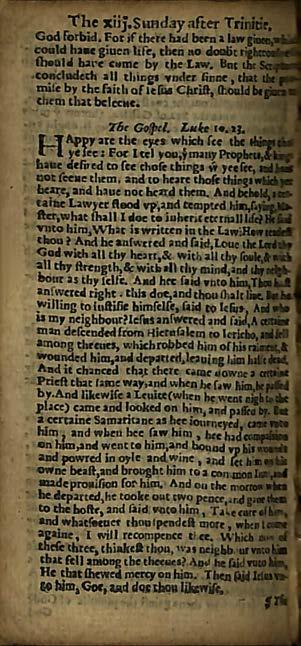 The xiij. Sunday after Trinitie.
God forbid. For if there had been a law giuen, which
could haue giuen life, then no doubt righteousnes
should haue come by the Law. But the Scripture
concludeth all things vnder sinne, that the pro-
mise by the faith of Iesus Christ, should be giuen to
them that beleeue.
The Gospel. Luke 10. 23.
HAppy are the eyes which see the things that
ye see: For I tell you, ẏ many Prophets, & kings
haue desired to see those things ẇ yee see, and haue
not seene them. and to heare those things which yee
heare, and haue not heard them. And behold, a cer-
taine Lawyer stood vp, and tempted him, saying, Ma-
ster, what shall I doe to inherit eternall life? He said
vnto him, What is written in the Law: How readest
thou? And he answered and said, Loue the Lord thy
God with all thy heart, & with all thy soule, & with
all thy strength, & with all thy mind, and thy neigh-
bour as thy selfe. And hee said vnto him, Thou hast
answered right. this doe, and thou shalt liue. But he
willing to iustifie himselfe, said to Iesus, And who
is my neighbour? Iesus answered and said, A certaine
man descended from Hierusalem to Iericho, and fell
among theeues, which robbed him of his raiment, &
wounded him, and departed, leauing him halfe dead.
And it chanced that there came downe a certaine
Priest that same way, and when he saw him, he passed
by. And likewise a Leuite (when he went nigh to the
place) came and looked on him, and passed by. But
a certaine Samaritane as hee iourneyed, came vnto
him, and when hee saw him, hee had compassion
on him, and went to him, and bound vp his wounds
and powred in oyle and wine, and set him on his
owne beast, and brought him to a common Inn, and
made prouision for him. And on the morrow when
he departed, he tooke out two pence, and gaue them
to the hoste, and said vnto him, Take cure of him,
and whatsoeuer thou spendest more, when I come
againe, I will recompence thee. Which now of
these three, thinkest thou, was neighbour vnto him
that fell among the theeues? And he said vnto him,
He that shewed mercy on him. Then said Iesus vn-
to him, Goe, and doe thou likewise.
¶ The